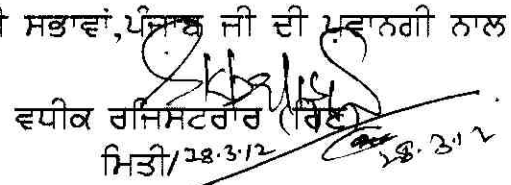 ਸਭਾਵਾਂ,ਪੰਜਾਬ ਜੀ ਦੀ ਪ੍ਰਵਾਨਗੀ ਨਾਲ
ਵਧੀਕ ਰਜਿਸਟਰਾਰ (ਰਿਣ)
ਮਿਤੀ/28.3.12 28.3.12